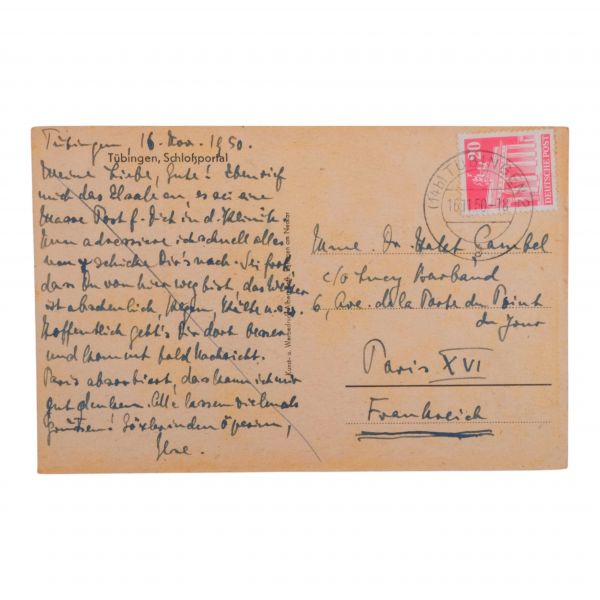 Tübingen, 16. Nov. 1950.
Tübingen, Schloßportal
Meine Liebe, Gute! Eben rief
mich das an, es sei eine
Masse Post f. Dich in d. Klinik
nun adressiere ich schnell alles
um & schicke Dir's nach. Sei froh,
dass Du von hier weg bist, das Wetter
ist abscheulich, Regen, Kälte u.s.w.
Hoffentlich geht's Dir dort besser
und kommt bald Nachricht.
Paris absorbiert, das kann ich mir
gut denken. Alle lassen vielmals
grüssen!
Kunst- u. Werbefoto
am Neckar
20
DEUTSCHE POST
(14b) TÜBINGEN 2
16.11.50-18
Mme. Dr. Halet Cambel
c/o Lucy Barband
6, Ave. de la Porte du Point
du Jour
Paris XVI
Frankreich